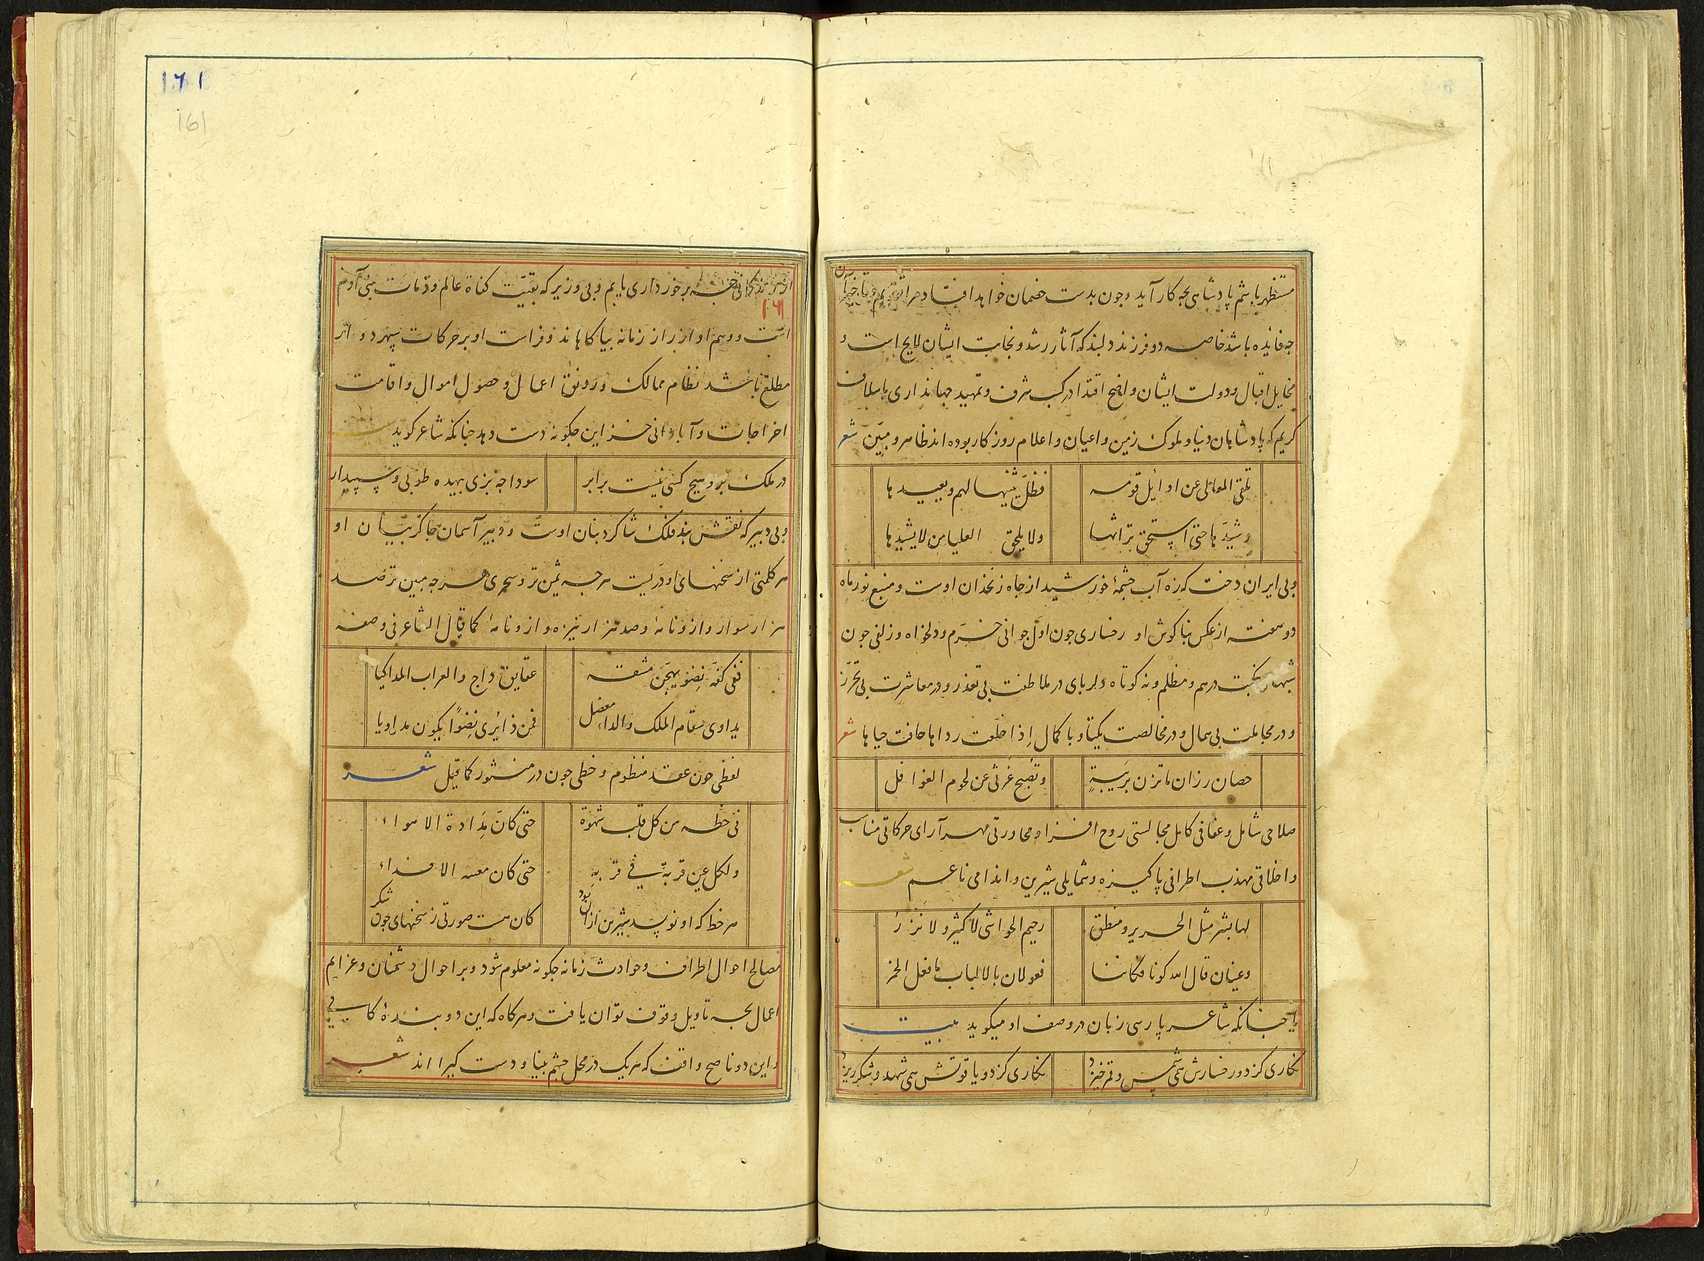 مستظهر باشم پادشاهی بچه کار آید و چون بدست خصمان خواهد افتاد مرا
چه فایده باشد خاصه دو فرزند دلبند که آثار رشد و نجابت ایشان لایح است و
مخایل اقبال و دولت ایشان واضح اقتدا در کسب شرف و تمهید جهانداری باسلاف
کریم که پادشاهان دنیا و ملوک زمین و اعیان و اعلام روزکار بوده اند ظاهر و مبین شعر
تلقی المعالی عن اوائل قومه فظل یثنیها لهم و یعیدها
وشیدها حتی استحق تراثها ولا یلحق العلیا من لا یشیدها
و بی ایران دخت که زه آب چشمهٔ خورشید از چاه زنخدان اوست و منبع نور ماه
دو هفته از عکس بناکوش او رخساری چون اول جوانی خرم و دلخواه و زلفی چون
درهم و مظلم و نه کوتاه دلربای در ملاطفت بی تعذر و در معاشرت بی تحرز
و در مجاملت بی همال و در مخالصت یکتا و با کمال اذا خلعت رداها خافت حیاها شعر
حصان رزان ما تزن بریبة وتصبح غرثی عن لحوم الغوافل
صلاحی شامل و عفافی کامل مجالستی روح افزا و محاورتی مهر آرای حرکاتی متناسب
و اخلاقی مهذب اطرافی پاکیزه و شمایلی شیرین و اندامی ناعم شعر
لها بشر مثل الحریر ومنطق رخیم الحواشی لا کثیر ولا نزر
وعینان قال الله کونا فکانتا فعولان بالالباب ما تفعل الخمر
یا چنانکه شاعر پارسی زبان در وصف او میکوید بیت
نکاری کز دو رخسارش همی شمس و قمر خیزد نکاری کز دو یاقوتش همی شهد و شکر ریزد
۱۶۱
161
از زندکانی چه برخورداری یابم و بی وزیر که بقیت کفاة عالم و دهات بنی آدم
۱۶۱
است و وهم او از راز زمانه بیاکاهاند و فراست او بر حرکات سپهر دوار
مطلع باشد نظام ممالک و رونق اعمال و حصول اموال و اقامت
اخراجات و آبادانی خزاین چکونه دست دهد چنانکه شاعر کوید
در ملک برو هیچ کسی نیست برابر سودا چه بزی بیهده طوبی و سپیدار
و بی دبیر که نقش بند فلک شاکرد بنان اوست و دبیر آسمان چاکر بیان او
هر کلمتی از سخنهای او دریست هرچه ثمین تر و سحری هرچه مبین تر صد
هزار سوار و ازو نامهٔ و صد هزار نیزه و ازو نامهٔ کما قال الشاعر فی وصفه
ففی کفه نضو یهجن مشقه عقایق داج والعراب المذاکیا
یداوی سقام الملک والداء معضل فمن ذا یری نضوا یکون مداویا
لفظی چون عقد منظوم و خطی چون در منثور کما قیل شعر
فی خطه من کل قلب شهوة حتی کان مداده الاهواء
ولکل عین قرة فی قربه حتی کان مغیبه الاقذاء
هر خط که او نویسد شیرین از آن بود کان هست صورتی ز سخنهای چون شکر
مصالح احوال اطراف و حوادث زمانه چکونه معلوم شود و بر احوال دشمنان و عزایم
اعمال بچه تاویل وقوف توان یافت و هرکاه که این دو بندهٔ کافی
و این دو ناصح واقف که هریک در محل چشم بینا و دست کیرا اند شعر